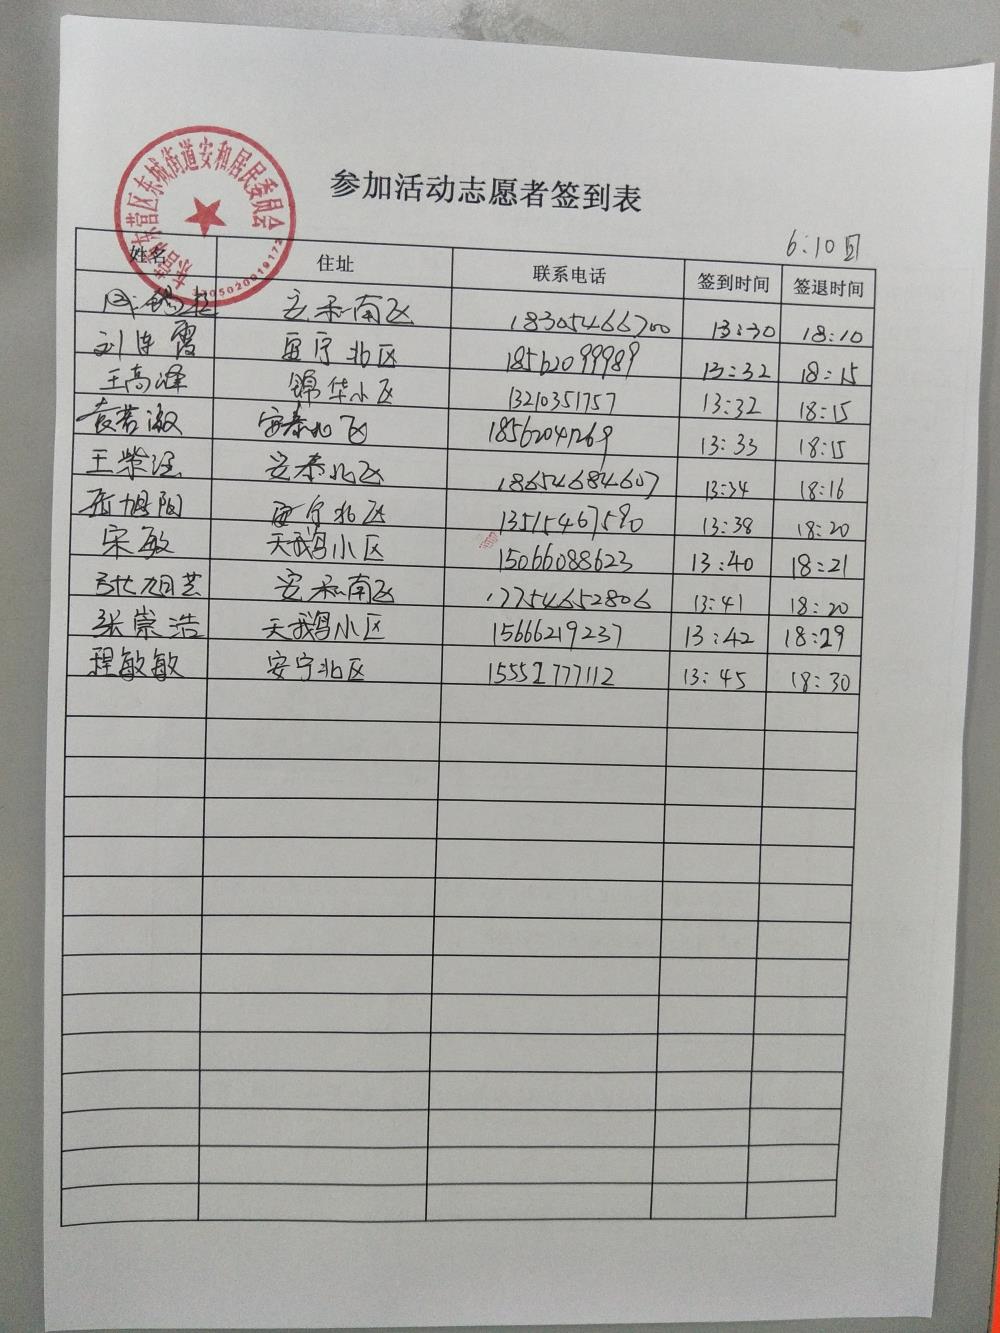 东营市东营区东城街道安和居民委员会
参加活动志愿者签到表
6:10回
姓名 住址 联系电话 签到时间 签退时间
安和南区 18305466700 13:30 18:10
刘连霞 安宁北区 18562099989 13:32 18:15
王高峰 锦华小区 13210351757 13:32 18:15
袁若淑 安泰北区 13:33 18:15
安泰北区 18654684607 13:34 18:16
旭阳 安宁北区 13515467590 13:38 18:20
宋敏 天鹅小区 15066088623 13:40 18:21
张旭芸 安和南区 17754652806 13:41 18:20
张崇浩 天鹅小区 15666219237 13:42 18:29
程敏敏 安宁北区 15552777112 13:45 18:30